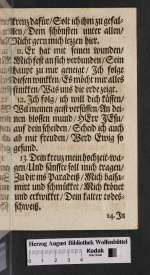 kreuz dafür/ Solt ich ihm zu gefal-
len/ Dem schönsten unter allen/
Nicht gern mich letzen hier.
11. Er hat mit seinen wunden/
Mich fest an sich verbunden/ Sein
Haupt zu mir geneigt/ Ich folge
diesen wincken/ Es möcht mir alles
sincken/ Was uns die erde zeigt.
12. Ich folg/ ich will dich küssen/
mund/ HErr JEsu/
auf dein scheiden/ Scheid ich auch
ab mit freuden/ Werd Ewig so
gesund.
13. Dein kreuz mein hochzeit-wa-
gen/ Und sänffte soll mich tragen/
Zu dir ins Paradeiß/ Mich
und schmücket/ Mich krönet
und erkwicket/ Dein kalter todes-
schweiß.
14. In
Herzog August Bibliothek Wolfenbüttel
Kodak